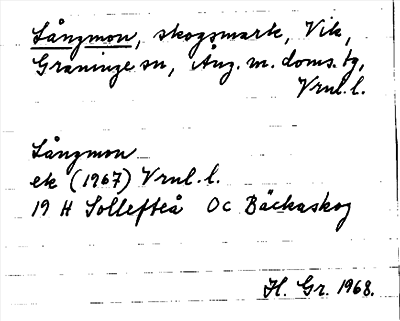 Långmon, skogsmark, Vik,
Graninge sn, Ång. m. doms. tg,
Vrnl. l.
Långmon
ek (1967) Vrnl. l.
19 H Sollefteå Oc Bäckaskog
H. Gr. 1968.